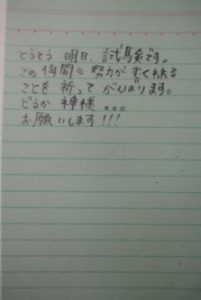 とうとう 明日、試験です。
この 年間の 努力が すくわれる
ことを 祈って がんばります。
どうか 神様。。。
お願いします!!!